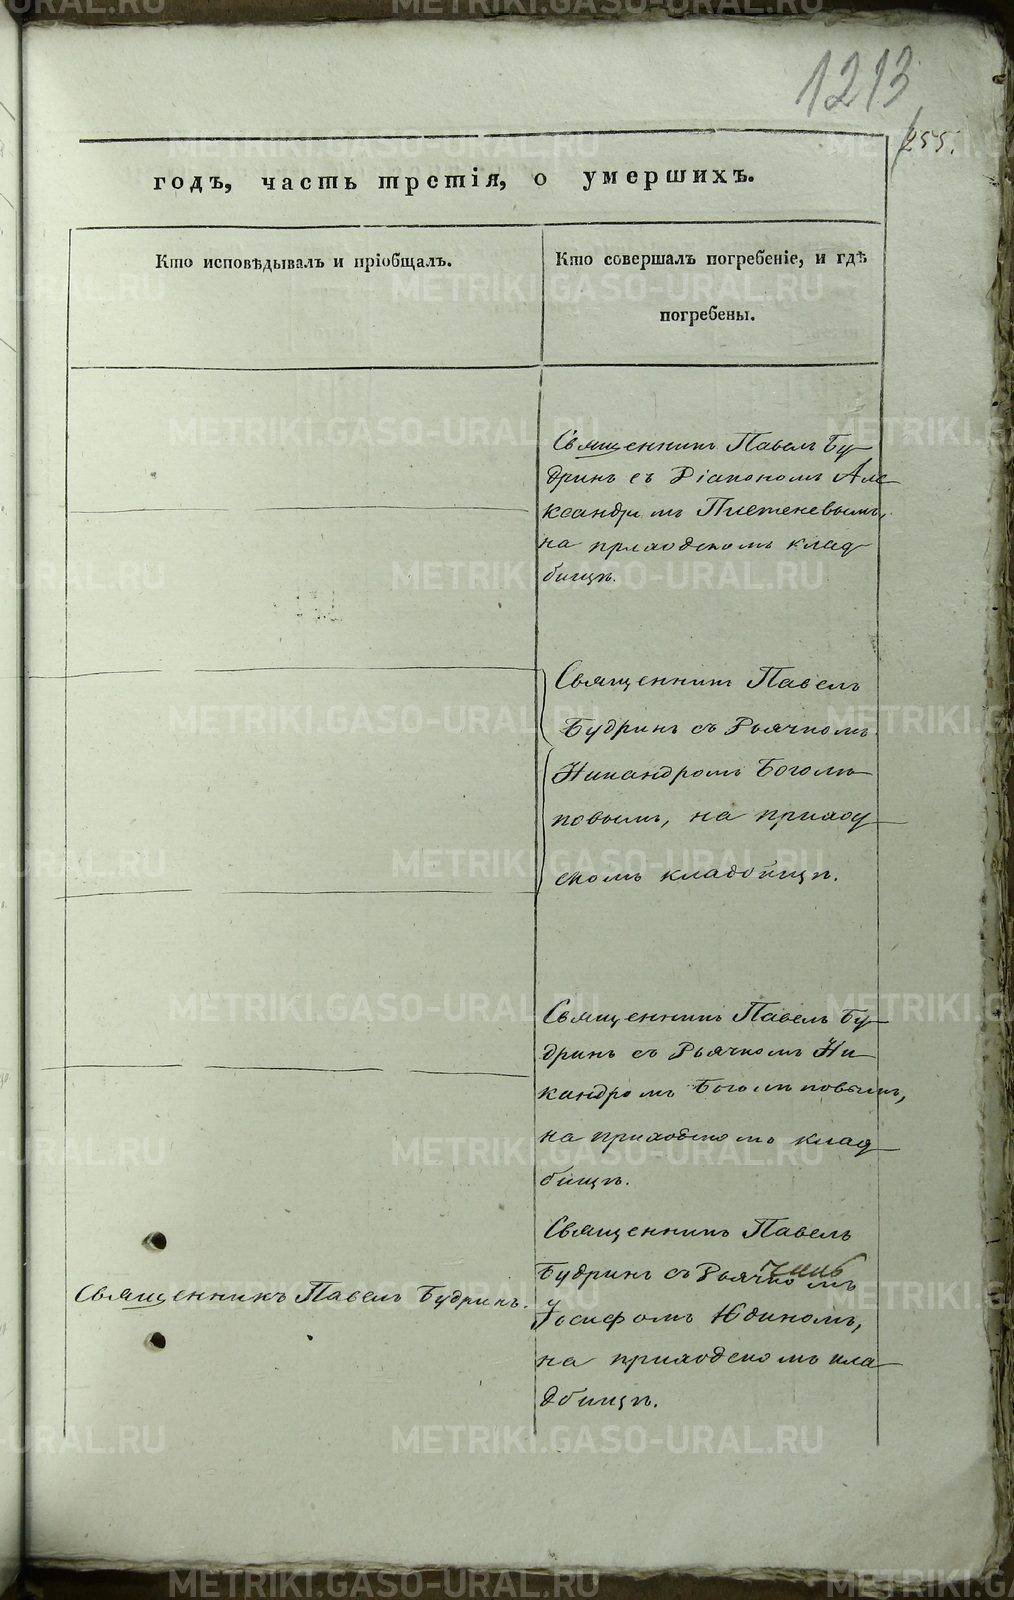 1213
255.
годъ, часть третія, о умершихъ.
Кто исповѣдывалъ и пріобщалъ.
Кто совершалъ погребеніе, и гдѣ
погребены.
Священникъ Павелъ Бу-
дринъ съ Діакономъ Але-
ксандромъ
на приходскомъ клад-
бищѣ.
Священникъ Павелъ
Будринъ съ Дьячкомъ
Никандромъ Боголѣ-
повымъ, на приход-
скомъ кладбищѣ.
Священникъ Павелъ Бу-
дринъ съ Дьячкомъ Ни-
кандромъ Боголѣповымъ,
на приходскомъ клад-
бищѣ.
Священникъ Павелъ Будринъ.
Священникъ Павелъ
Будринъ съ Дьячкомъ
Іосифомъ Юдиномъ,
на приходскомъ кла-
дбищѣ.
METRIKI.GASO-URAL.RU